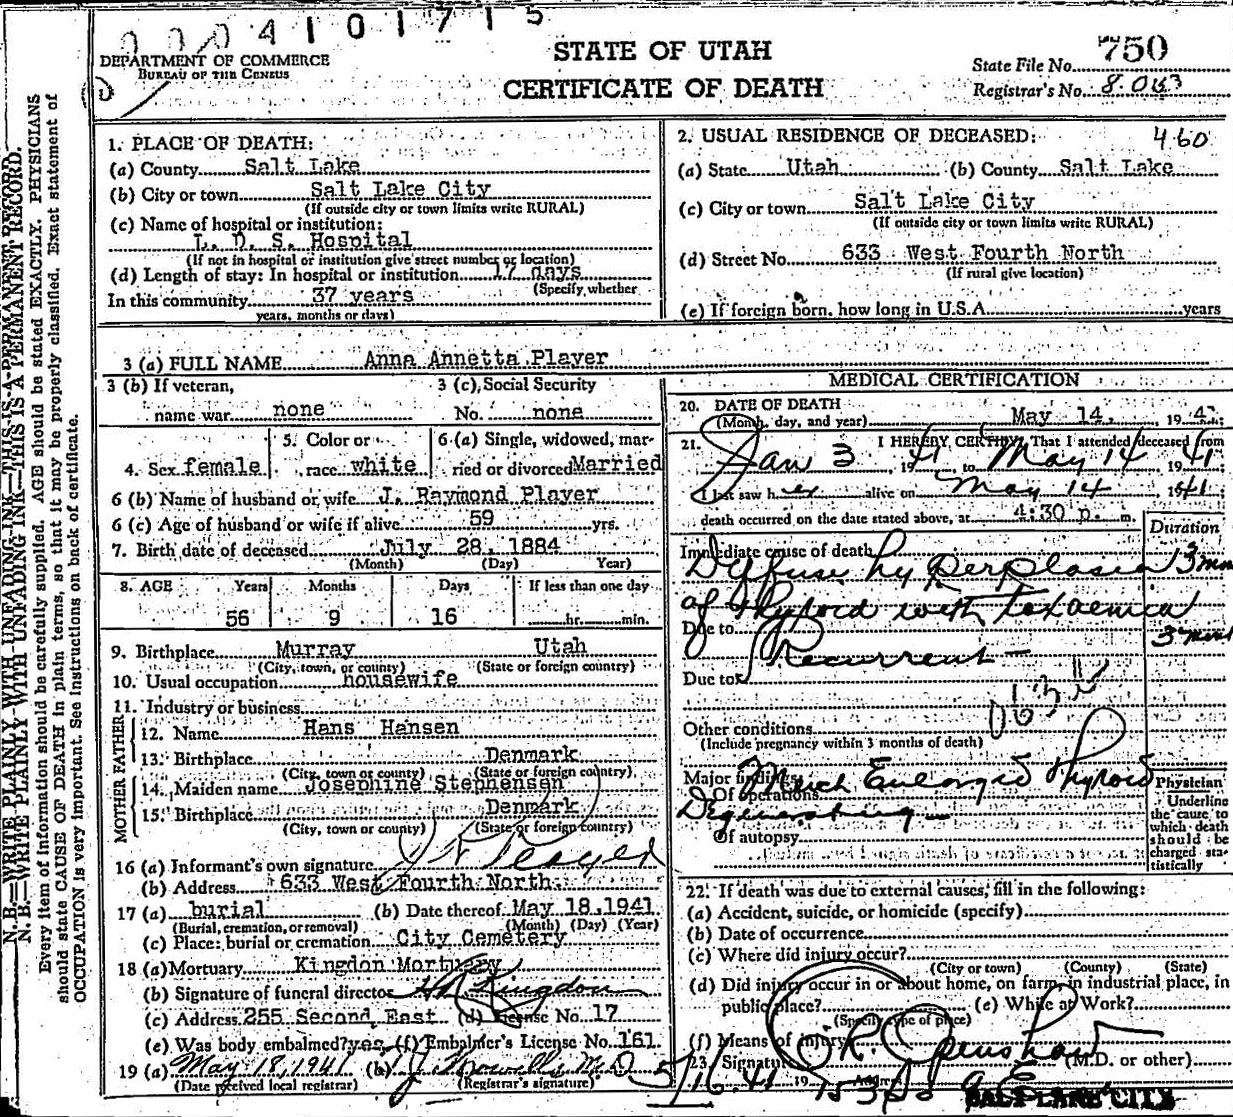 0004101715
DEPARTMENT OF COMMERCE
BUREAU OF THE CENSUS
STATE OF UTAH
CERTIFICATE OF DEATH
State File No. 750
Registrar's No.
460
N. B.—WRITE PLAINLY WITH UNFADING INK—THIS IS A PERMANENT RECORD.
N. B.—WRITE PLAINLY WITH UNFADING INK—THIS IS A PERMANENT RECORD.
Every item of information should be carefully supplied. AGE should be stated EXACTLY. PHYSICIANS
should state CAUSE OF DEATH in plain terms, so that it may be properly classified. Exact statement of
OCCUPATION is very important. See instructions on back of certificate.
1. PLACE OF DEATH:
(a) County Salt Lake
(b) City or town Salt Lake City
(If outside city or town limits write RURAL)
(c) Name of hospital or institution:
L. D. S. Hospital
(If not in hospital or institution give street number or location)
(d) Length of stay: In hospital or institution 17 days
(Specify whether
In this community 37 years
years, months or days)
2. USUAL RESIDENCE OF DECEASED:
(a) State Utah (b) County Salt Lake
(c) City or town Salt Lake City
(If outside city or town limits write RURAL)
(d) Street No. 633 West Fourth North
(If rural give location)
(e) If foreign born, how long in U.S.A. years
3 (a) FULL NAME Anna Annetta Player
3 (b) If veteran,
name war none
3 (c) Social Security
No. none
4. Sex female
5. Color or
race white
6 (a) Single, widowed, mar-
ried or divorced Married
6 (b) Name of husband or wife J. Raymond Player
6 (c) Age of husband or wife if alive 59 yrs.
7. Birth date of deceased July 28, 1884
(Month) (Day) Year)
8. AGE Years Months Days If less than one day
56 9 16 hr. min.
9. Birthplace Murray Utah
(City, town, or county) (State or foreign country)
10. Usual occupation housewife
11. Industry or business
FATHER
12. Name Hans Hansen
13. Birthplace Denmark
(City, town or county) (State or foreign country)
MOTHER
14. Maiden name Josephine Stephensen
15. Birthplace Denmark
(City, town or county) (State or foreign country)
16 (a) Informant's own signature J R Player
(b) Address 633 West Fourth North
17 (a) burial (b) Date thereof May 18, 1941
(Burial, cremation, or removal) (Month) (Day) (Year)
(c) Place: burial or cremation City Cemetery
18 (a) Mortuary Kingdon Mortuary
(b) Signature of funeral director Kingdon
(c) Address 255 Second East (d) License No. 17
(e) Was body embalmed? yes (f) Embalmer's License No. 161
19 (a) May 18, 1941 (b) M.D.
(Date received local registrar) (Registrar's signature)
MEDICAL CERTIFICATION
20. DATE OF DEATH
(Month, day, and year) May 14, 194
21. I HEREBY CERTIFY, That I attended deceased from
Jan 3 1941 to May 14 1941
I last saw her alive on May 14 1941
death occurred on the date stated above, at 4:30 p. m.
Duration
Immediate cause of death
Diffuse hyperplasia 3 mo
of Thyroid with toxaemia
Due to
Recurrent
Due to
Other conditions
(Include pregnancy within 3 months of death)
Major findings:
Of operations Much Enlarged Thyroid
Of autopsy
Physician
Underline
the cause to
which death
should be
charged sta-
tistically
22. If death was due to external causes, fill in the following:
(a) Accident, suicide, or homicide (specify)
(b) Date of occurrence
(c) Where did injury occur?
(City or town) (County) (State)
(d) Did injury occur in or about home, on farm, in industrial place, in
public place? (e) While at Work?
(Specify type of place)
(f) Means of injury
23. Signature Openshaw (M.D. or other)
5/16.41 19 Address
SALT LAKE CITY